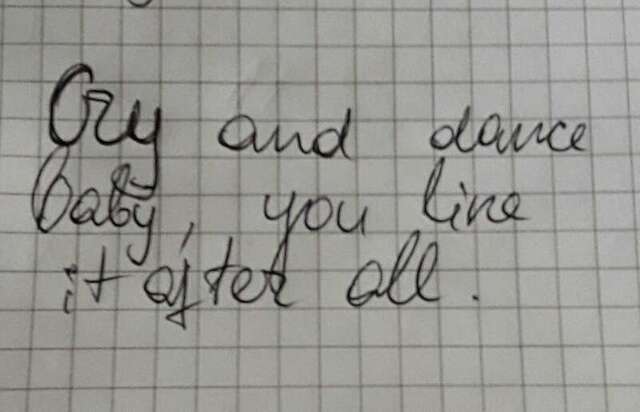 Cry and dance
baby, you like
it after all.